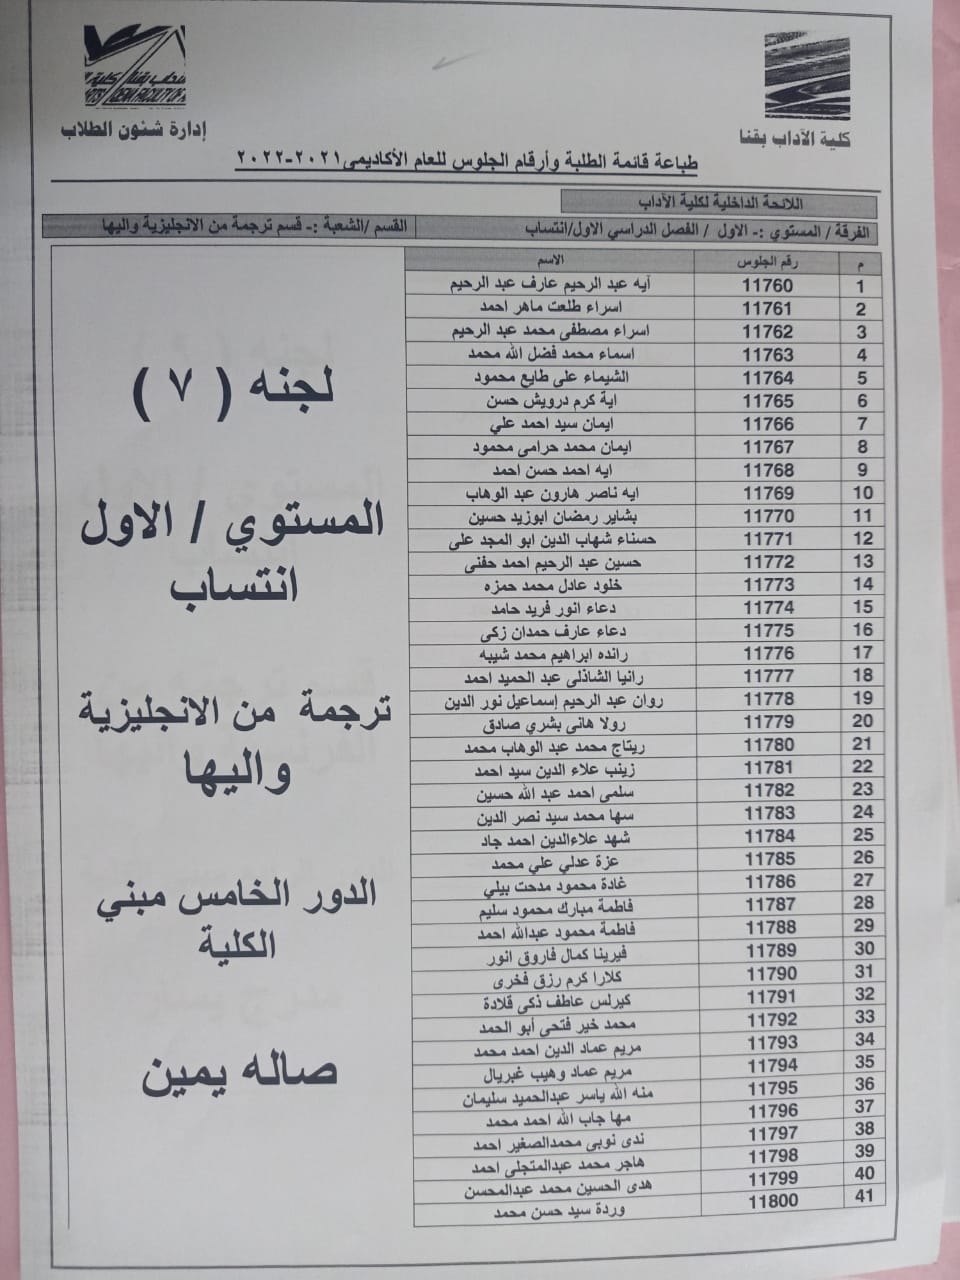 كلية الآداب بقنا
إدارة شئون الطلاب
طباعة قائمة الطلبة وأرقام الجلوس للعام الأكاديمى ٢٠٢١-٢٠٢٢
اللائحة الداخلية لكلية الآداب
الفرقة / المستوي :- الاول / الفصل الدراسي الاول/انتساب القسم /الشعبة :- قسم ترجمة من الانجليزية واليها
م رقم الجلوس الاسم
1 11760 آيه عبد الرحيم عارف عبد الرحيم
2 11761 اسراء طلعت ماهر احمد
3 11762 اسراء مصطفى محمد عبد الرحيم
4 11763 اسماء محمد فضل الله محمد
5 11764 الشيماء على طايع محمود
6 11765 اية كرم درويش حسن
7 11766 ايمان سيد احمد علي
8 11767 ايمان محمد حرامى محمود
9 11768 ايه احمد حسن احمد
10 11769 ايه ناصر هارون عبد الوهاب
11 11770 بشاير رمضان ابوزيد حسين
12 11771 حسناء شهاب الدين ابو المجد على
13 11772 حسين عبد الرحيم احمد حفنى
14 11773 خلود عادل محمد حمزه
15 11774 دعاء انور فريد حامد
16 11775 دعاء عارف حمدان زكى
17 11776 رانده ابراهيم محمد شيبه
18 11777 رانيا الشاذلى عبد الحميد احمد
19 11778 روان عبد الرحيم إسماعيل نور الدين
20 11779 رولا هانى بشري صادق
21 11780 ريتاج محمد عبد الوهاب محمد
22 11781 زينب علاء الدين سيد احمد
23 11782 سلمى احمد عبد الله حسين
24 11783 سها محمد سيد نصر الدين
25 11784 شهد علاءالدين احمد جاد
26 11785 عزة عدلي علي محمد
27 11786 غادة محمود مدحت بيلي
28 11787 فاطمة مبارك محمود سليم
29 11788 فاطمة محمود عبدالله احمد
30 11789 فيرينا كمال فاروق انور
31 11790 كلارا كرم رزق فخرى
32 11791 كيرلس عاطف ذكى قلادة
33 11792 محمد خير فتحى أبو الحمد
34 11793 مريم عماد الدين احمد محمد
35 11794 مريم عماد وهيب غبريال
36 11795 منه الله ياسر عبدالحميد سليمان
37 11796 مها جاب الله احمد محمد
38 11797 ندى نوبى محمدالصغير احمد
39 11798 هاجر محمد عبدالمتجلى احمد
40 11799 هدى الحسين محمد عبدالمحسن
41 11800 وردة سيد حسن محمد
لجنه ( ٧ )
المستوي / الاول
انتساب
ترجمة من الانجليزية
واليها
الدور الخامس مبني
الكلية
صاله يمين